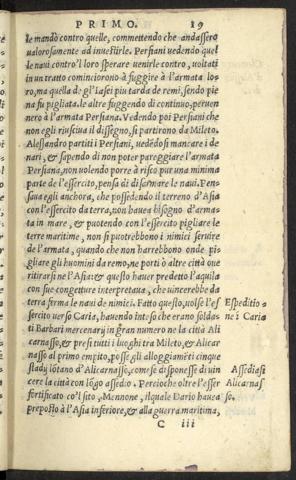 PRIMO. 19
le mandò contro quelle, commettendo che andassero
ualorosamente ad inuestirle. Persiani uedendo quel
le naui contro'l loro sperare uenirle contro, uoltati
in un tratto cominciorono à fuggire à l'armata lo
ro, ma quella de gl'Iasei piu tarda de remi, sendo pie
na fu pigliata. le altre fuggendo di continuo, peruen
nero à l'armata Persiana. Vedendo poi Persiani che
non egli riusciua il dissegno, si partirono da Mileto.
Alessandro partiti i Persiani, uedēdosi mancare i de
nari, & sapendo di non poter pareggiare l'armata
Persiana, non uolendo porre à risco pur una minima
parte de l'essercito, pensa di disarmare le naui. Pen-
saua egli anchora, che possedendo il terreno d'Asia
con l'essercito da terra, non haueua bisogno d'arma-
ta in mare, & puotendo con l'essercito pigliare le
terre maritime, non si puotrebbono i nimici seruire
de l'armata, quando che non harrebbono onde pi-
gliare gli huomini da remo, ne porti ò altre città oue
ritirarsi ne l'Asia: & questo hauer predetto l'aquila
con sue congetture interpretata, che uincerebbe da
terra ferma le naui de nimici. Fatto questo, uolse l'es
sercito uerso Caria, hauendo inteso che erano solda-
ti Barbari mercenarij in gran numero ne la città Ali
carnasso, & presi tutti i luoghi tra Mileto, & Alicar
nasso al primo empito, posse gli alloggiamēti cinque
stadij lōtano d'Alicarnasso, come se disponesse di uin
cere la città con lōgo assedio. Percioche oltre l'esser
fortificato co'l sito, Mennone, il quale Dario haueua
preposto à l'Asia inferiore, & à la guerra maritima,
C iii
Espeditio
ne ì Caria
Assediasi
Alicarnas
so.